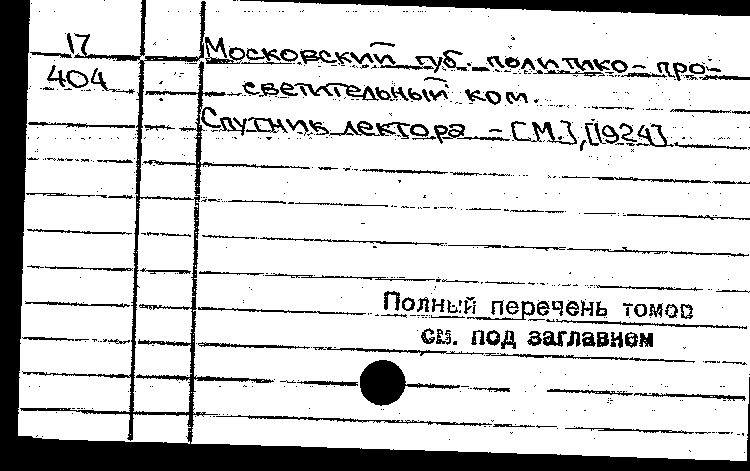 17
404
Московский губ. политико-про-
светительный ком.
Спутник лектора - [М.], [1924].
Полный перечень томов
см. под заглавием